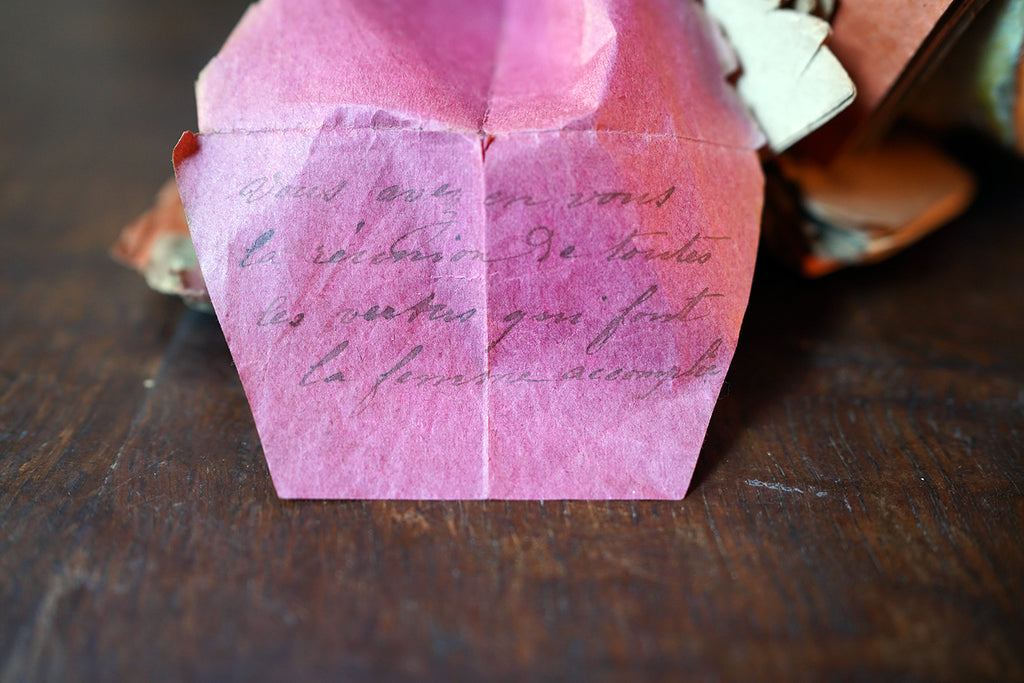 vous avez en vous
la réunion de toutes
les vertus qui font
la femme accomplie